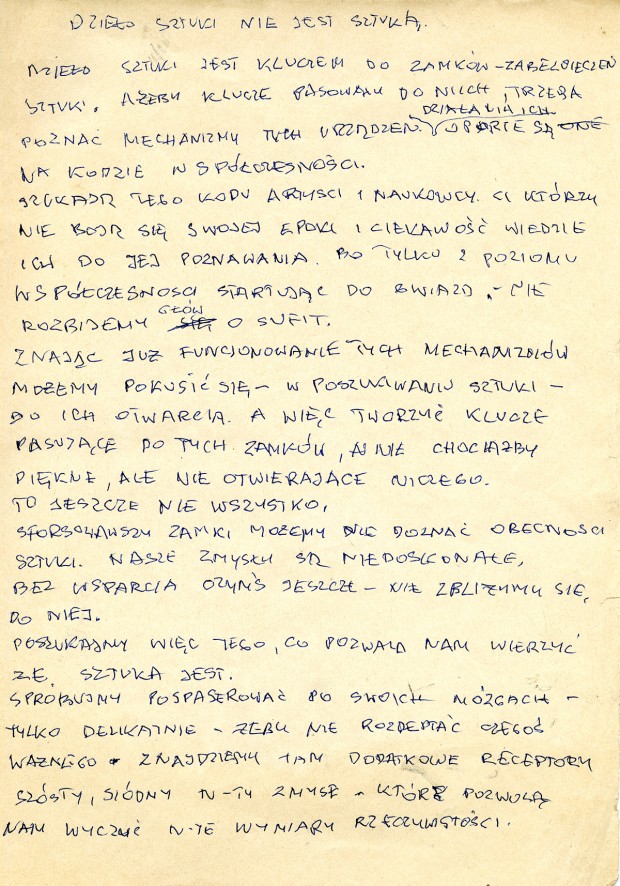 DZIEŁO SZTUKI NIE JEST SZTUKĄ.
DZIEŁO SZTUKI JEST KLUCZEM DO ZAMKÓW-ZABEZPIECZEŃ
SZTUKI. AŻEBY KLUCZE PASOWAŁY DO NICH, TRZEBA
DZIAŁANIA ICH
POZNAĆ MECHANIZMY TYCH URZĄDZEŃ. OPARTE SĄ ONE
NA KODZIE WSPÓŁCZESNOŚCI.
SZUKAJĄ TEGO KODU ARTYŚCI I NAUKOWCY. CI KTÓRZY
NIE BOJĄ SIĘ SWOJEJ EPOKI I CIEKAWOŚĆ WIEDZIE
ICH DO JEJ POZNAWANIA. BO TYLKO Z POZIOMU
WSPÓŁCZESNOŚCI STARTUJĄC DO GWIAZD - NIE
GŁÓW
ROZBIJEMY SIĘ O SUFIT.
ZNAJĄC JUŻ FUNCJONOWANIE TYCH MECHANIZMÓW
MOŻEMY POKUSIĆ SIĘ - W POSZUKIWANIU SZTUKI -
DO ICH OTWARCIA. A WIĘC TWORZYĆ KLUCZE
PASUJĄCE DO TYCH ZAMKÓW, A NIE CHOCIAŻBY
PIĘKNE, ALE NIE OTWIERAJĄCE NICZEGO.
TO JESZCZE NIE WSZYSTKO.
SFORSOWAWSZY ZAMKI MOŻEMY NIE DOZNAĆ OBECNOŚCI
SZTUKI. NASZE ZMYSŁY SĄ NIEDOSKONAŁE,
BEZ WSPARCIA CZYMŚ JESZCZE - NIE ZBLIŻYMY SIĘ
DO NIEJ.
POSZUKAJMY WIĘC TEGO, CO POZWALA NAM WIERZYĆ
ŻE SZTUKA JEST.
SPRÓBUJMY POSPASEROWAĆ PO SWOICH MÓZGACH -
TYLKO DELIKATNIE - ŻEBY NIE ROZDEPTAĆ CZEGOŚ
WAŻNEGO - ZNAJDZIEMY TAM DODATKOWE RECEPTORY
SZÓSTY, SIÓDMY N-TY ZMYSŁ - KTÓRE POZWOLĄ
NAM WYCZUĆ N-TE WYMIARY RZECZYWISTOŚCI.